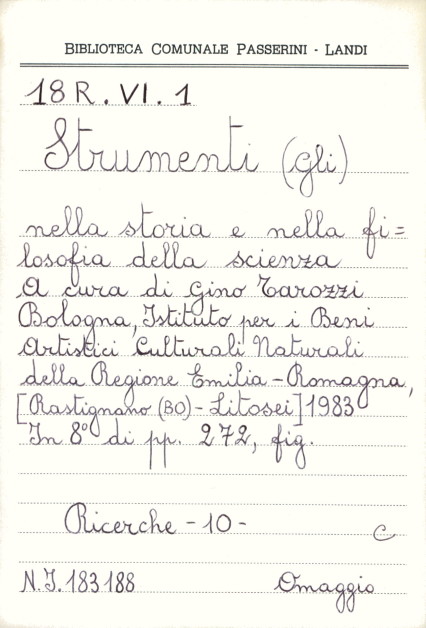 BIBLIOTECA COMUNALE PASSERINI - LANDI
18 R. VI. 1
Strumenti (gli)
nella storia e nella fi=
losofia della scienza
A cura di Gino Tarozzi
Bologna, Istituto per i Beni
Artistici Culturali Naturali
della Regione Emilia-Romagna,
[Rastignano (BO) - Litosei] 1983
In 8° di pp. 272, fig.
Ricerche - 10 -
C
N.I. 183188 Omaggio